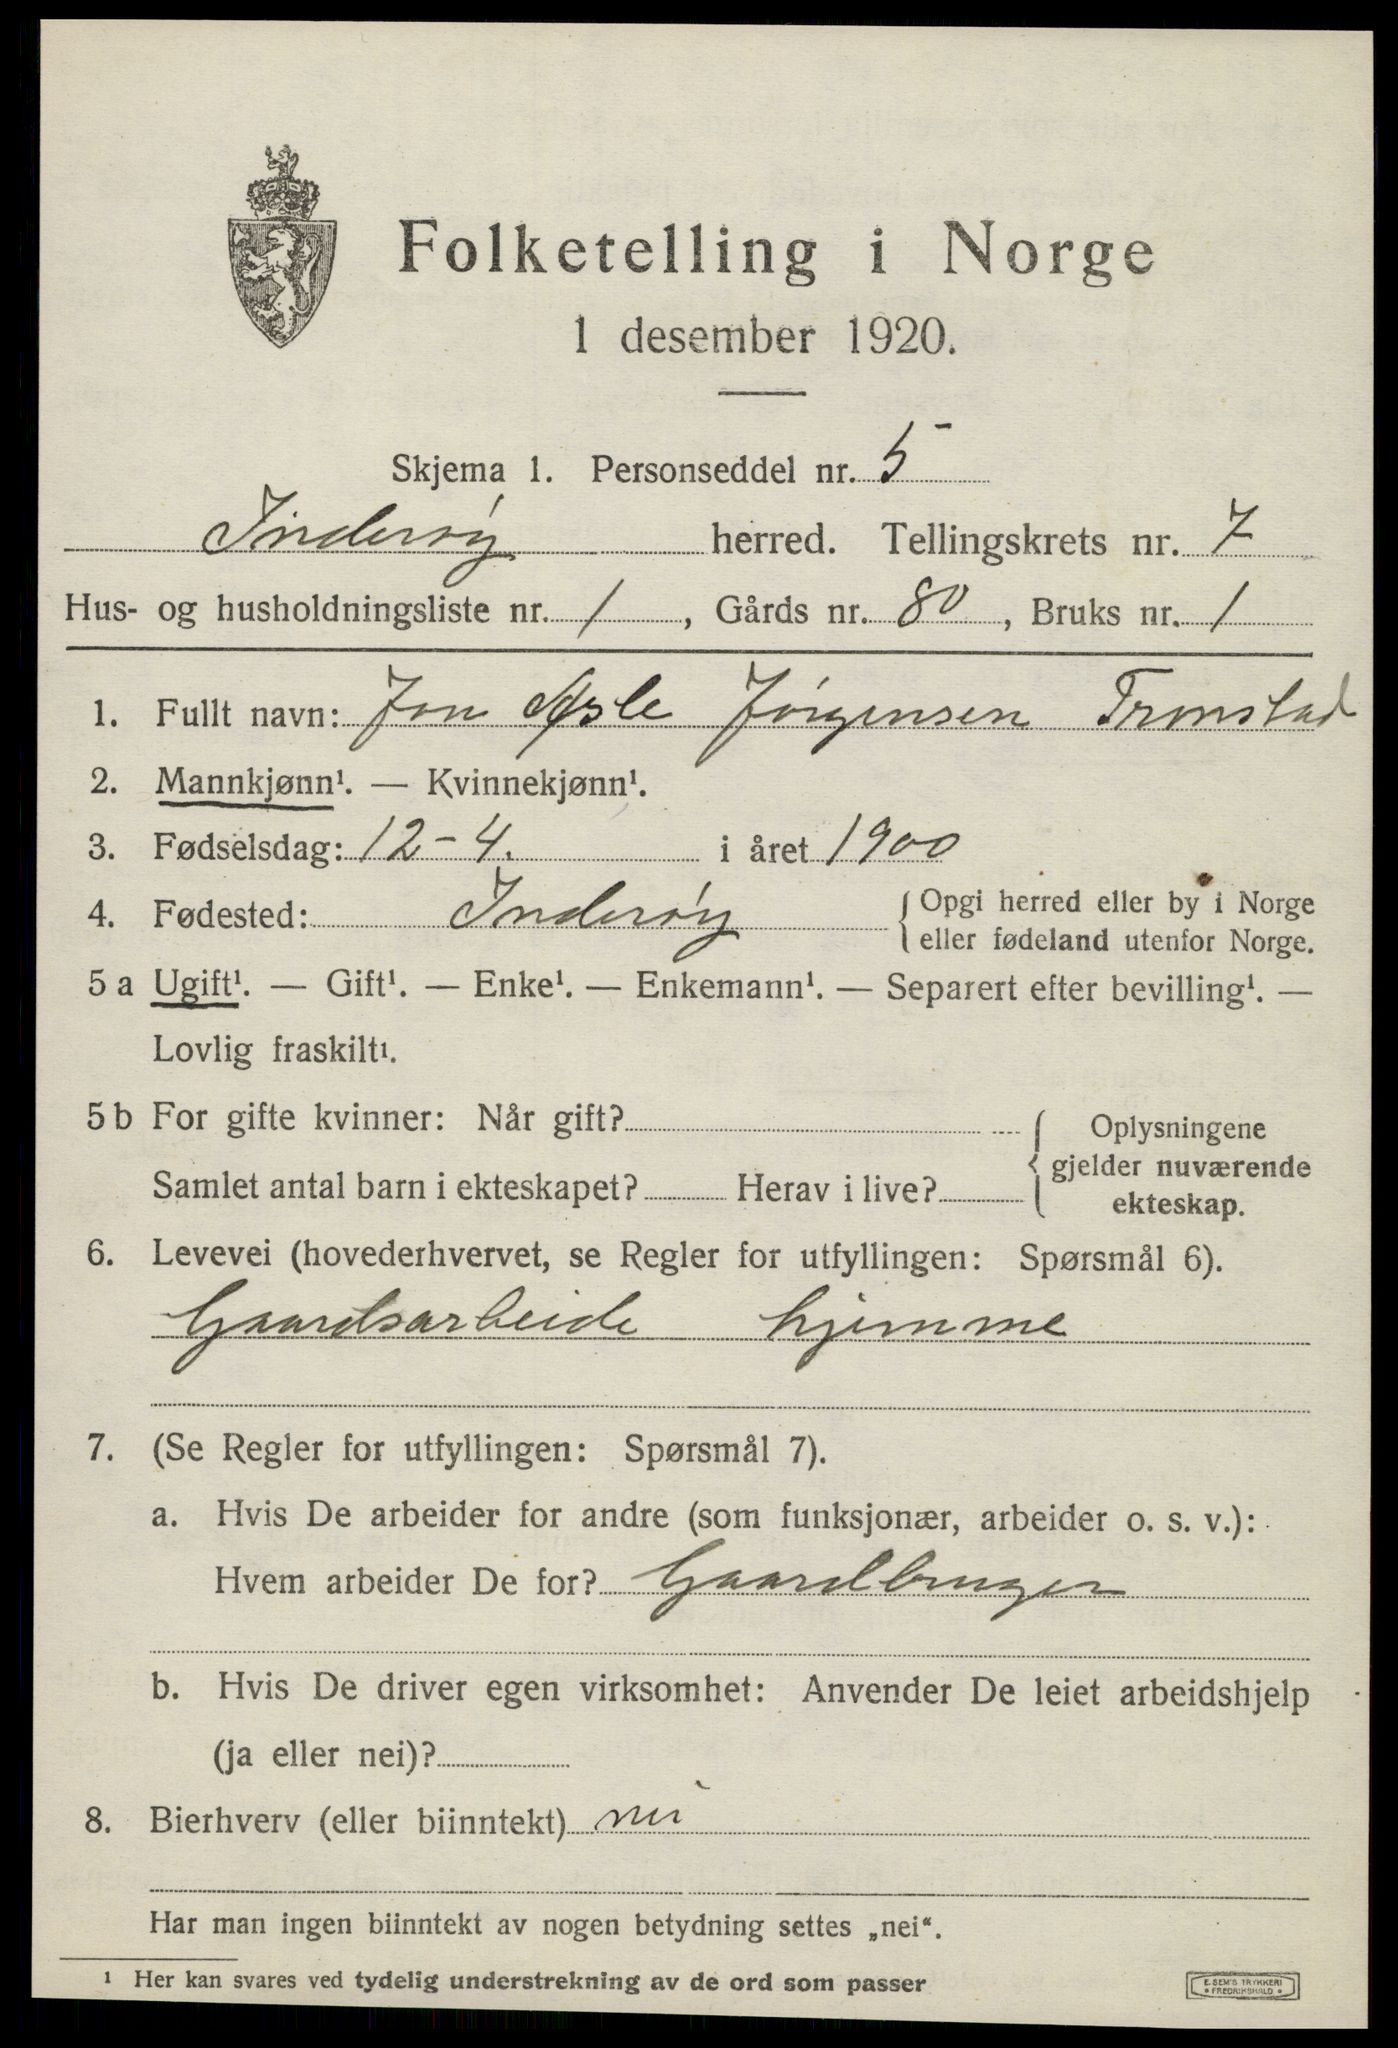 Folketelling i Norge
1 desember 1920.
Skjema 1. Personseddel nr. 5
Inderøy herred. Tellingskrets nr. 7
Hus- og husholdningsliste nr. 1, Gårds nr. 80, Bruks nr. 1
1. Fullt navn: Jon Asle Jørgensen Tronstad
2. Mannkjønn¹. — Kvinnekjønn¹.
3. Fødselsdag: 12-4. i året 1900
4. Fødested: Inderøy { Opgi herred eller by i Norge
eller fødeland utenfor Norge.
5 a Ugift¹. — Gift¹. — Enke¹. — Enkemann¹. — Separert efter bevilling¹. —
Lovlig fraskilt¹.
5 b For gifte kvinner: Når gift?
Samlet antal barn i ekteskapet? Herav i live?
{ Oplysningene
gjelder nuværende
ekteskap.
6. Levevei (hovederhvervet, se Regler for utfyllingen: Spørsmål 6).
Gaardsarbeide hjemme
7. (Se Regler for utfyllingen: Spørsmål 7).
a. Hvis De arbeider for andre (som funksjonær, arbeider o. s. v.):
Hvem arbeider De for? Gaardbruger
b. Hvis De driver egen virksomhet: Anvender De leiet arbeidshjelp
(ja eller nei)?
8. Bierhverv (eller biinntekt) nei
Har man ingen biinntekt av nogen betydning settes „nei“.
¹ Her kan svares ved tydelig understrekning av de ord som passer
E. SEM'S TRYKKERI
• FREDRIKSHALD •